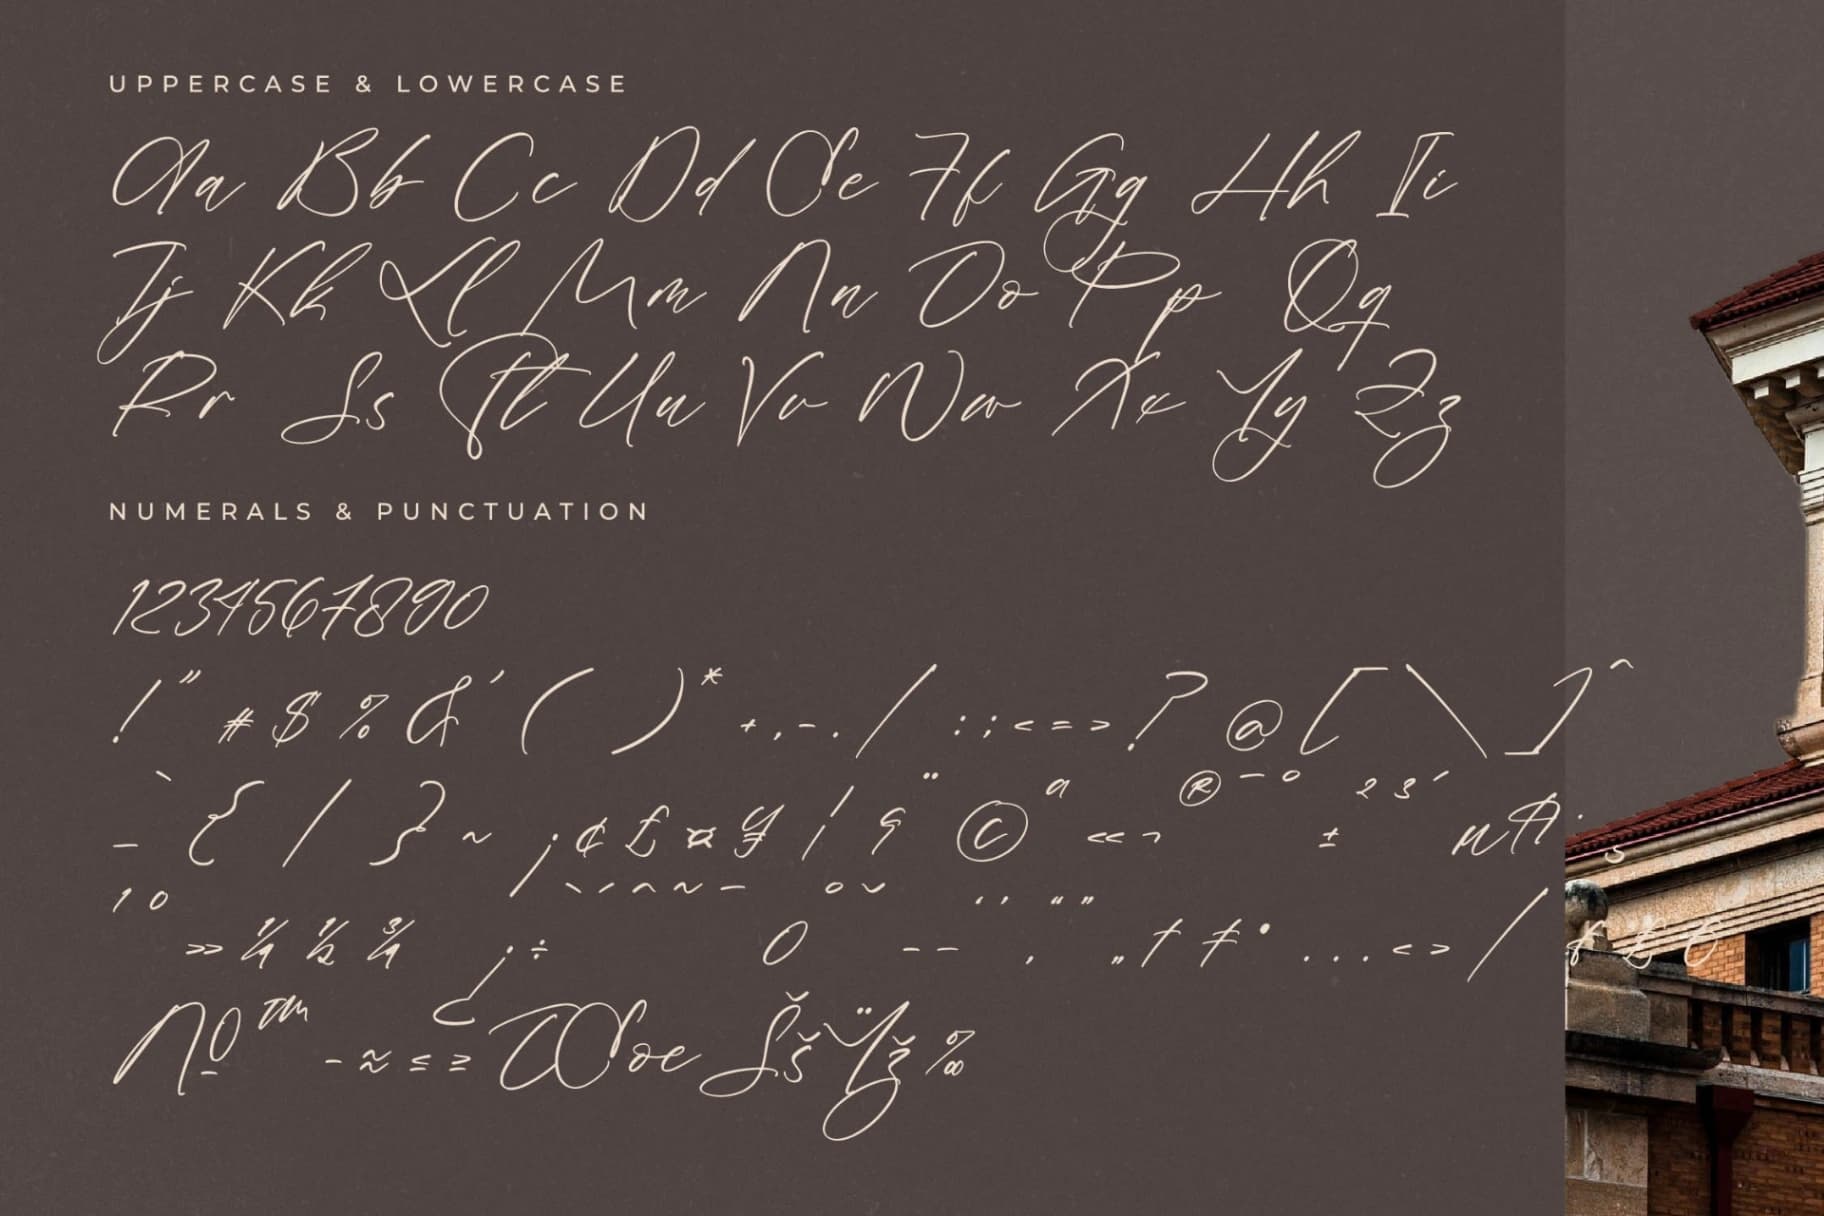 UPPERCASE & LOWERCASE
Aa Bb Cc Dd Ee Ff Gg Hh Ii
Jj Kk Ll Mm Nn Oo Pp Qq
Rr Ss Tt Uu Vv Ww Xx Yy Zz
NUMERALS & PUNCTUATION
1234567890
! " # $ % & ' ( ) * + , - . / : ; < = > ? @ [ \ ] ^
_ ` { | } ~ ¡ ¢ £ ¤ ¥ ¦ § ¨ © ª « ¬ ® ¯ ° ± ² ³ ´ µ ¶ · ¸
¹ º » ¼ ½ ¾ ¿ ÷ ˋ ˊ ˆ ˜ ¯ ° ˇ 0 – — ‘ ’ ‚ “ ” „ † ‡ • … ‹ › ⁄ ƒ £ €
№ ™ − ≈ ≤ ≥ Œ œ Š š Ÿ ž ‰